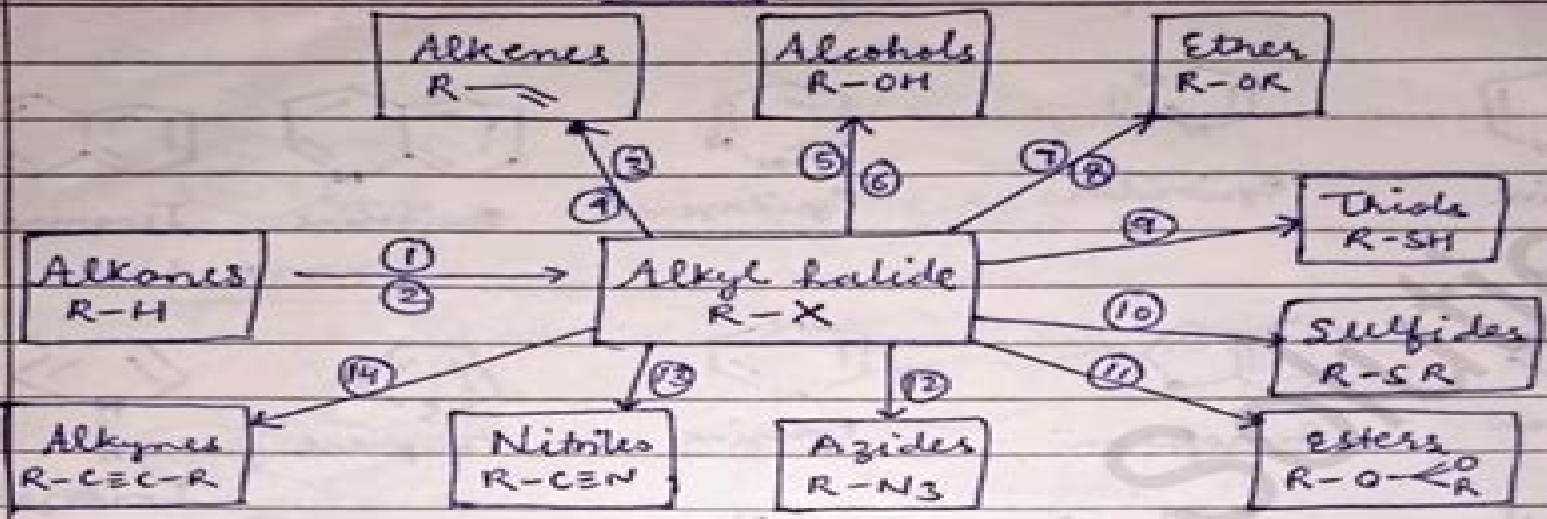 Alkenes
R
Alcohols
R-OH
Ether
R-OR
③
④
⑤
⑥
⑦
⑧
Thiols
R-SH
⑨
Alkanes
R-H
①
②
Alkyl halide
R-X
⑩
Sulfides
R-SR
⑭
⑬
⑫
⑪
Alkynes
R-C≡C-R
Nitriles
R-C≡N
Azides
R-N3
Esters
R-O-<O
R